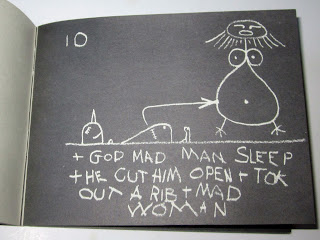 10
+ GOD MAD MAN SLEEP
+ HE CUT HIM OPEN + TOK
OUT A RIB + MAD
WOMAN